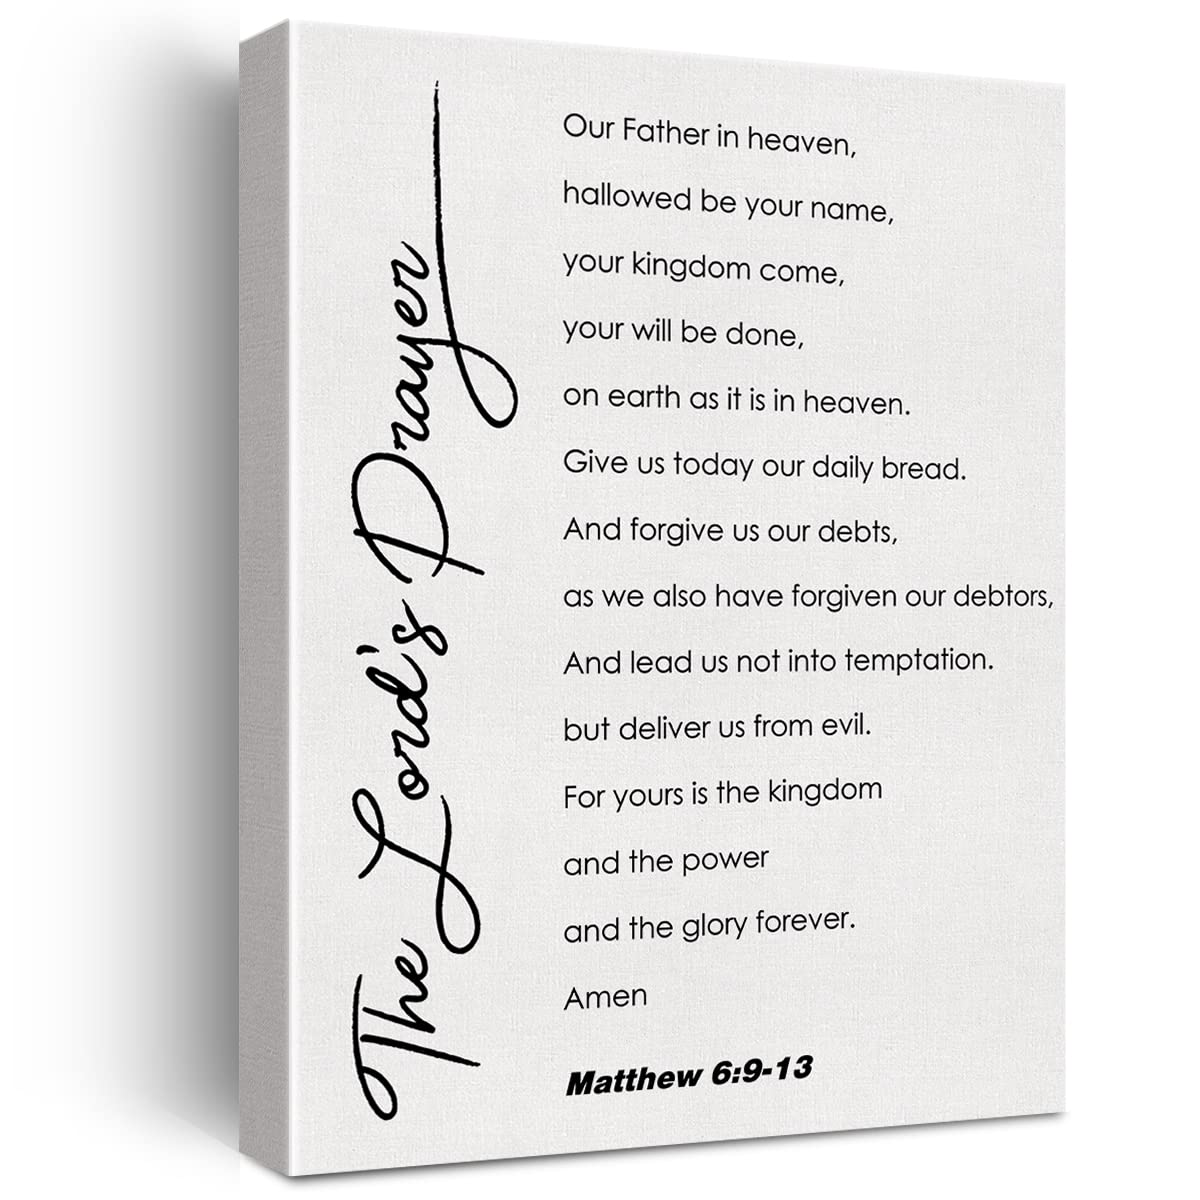 The Lord's Prayer
Our Father in heaven,
hallowed be your name,
your kingdom come,
your will be done,
on earth as it is in heaven.
Give us today our daily bread.
And forgive us our debts,
as we also have forgiven our debtors,
And lead us not into temptation.
but deliver us from evil.
For yours is the kingdom
and the power
and the glory forever.
Amen
Matthew 6:9-13